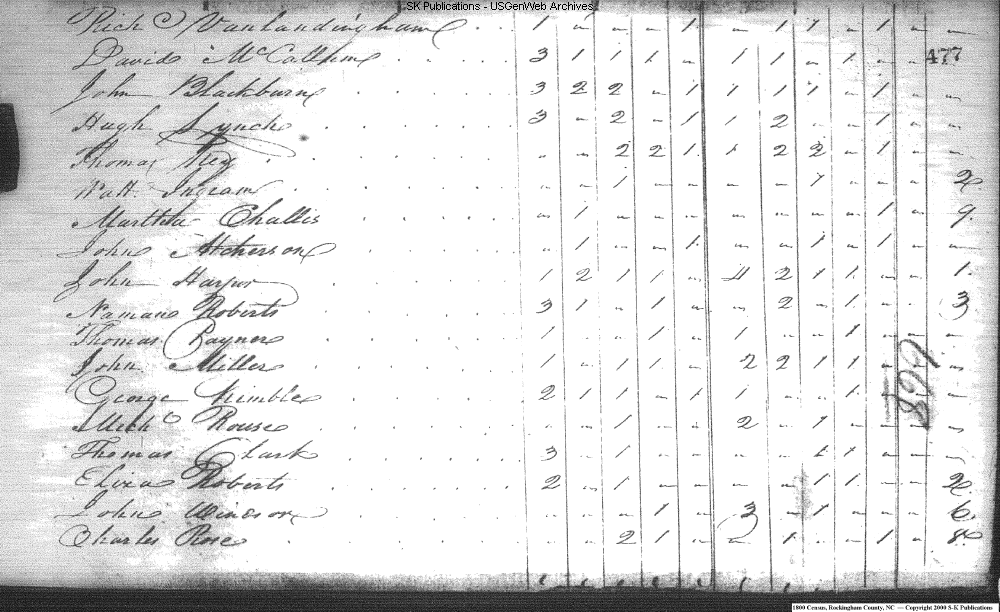 SK Publications - USGenWeb Archives
Rich^d Vanlandingham . . 1 - - - 1 - 1 1 - 1 - -
David McCallum 3 1 1 1 - 1 1 - 1 - - 477
John Blackburn 3 2 2 - 1 1 1 1 - 1 - -
Hugh Lynch 3 - 2 - 1 1 2 - - 1 - -
Thomas Key - - 2 2 1 1 2 2 - 1 - -
Natt. Ingram - - 1 - - - - 1 - - - 2
Marttha Challis - 1 - - - - - - - 1 - 9
John Atcherson - 1 - - 1 - - 1 - 1 - -
John Harper 1 2 1 1 - 4 2 1 1 - - 1
Naman Roberts 3 1 - 1 - - 2 - 1 - - 3
Thomas Rayner 1 - - 1 - 1 - - 1 - - -
John Miller 1 - 1 1 - 2 2 1 1 - - -
George Kimble 2 1 1 - 1 1 - - 1 - - -
Mich^l Rouse - - 1 - - 2 - 1 - - - -
Thomas Clark 3 - 1 - - - - 1 1 - - -
Eliza Roberts 2 - 1 - - - - 1 1 - - 2
John Windsor - - - 1 - 3 - 1 - - - 6
Charles Rose - - 2 1 - - 1 - - 1 - 8
1800 Census, Rockingham County, NC — Copyright 2000 S-K Publications